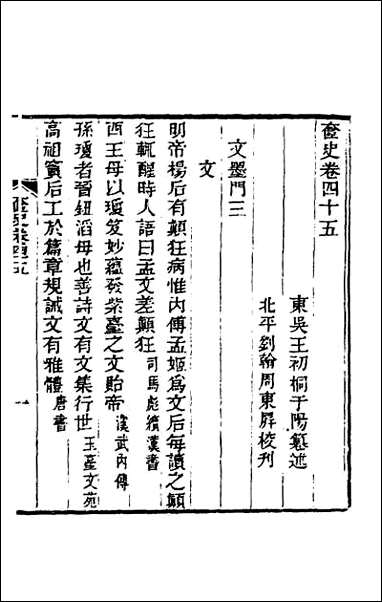 奩史卷四十五
東吳王初桐于陽纂述
北平劉翰周東屏校刊
文墨門三
文
明帝楊后有顛狂病惟內傅孟姬爲文后每讀之顛
狂輒醒時人語曰孟文差顛狂司馬彪續漢書
西王母以瓊笈妙蘊發紫臺之文貽帝漢武內傳
孫瓊者晉鈕滔母也善詩文有文集行世玉臺文苑
高祖竇后工於篇章規誡文有雅體唐書
奩史卷四十五
一